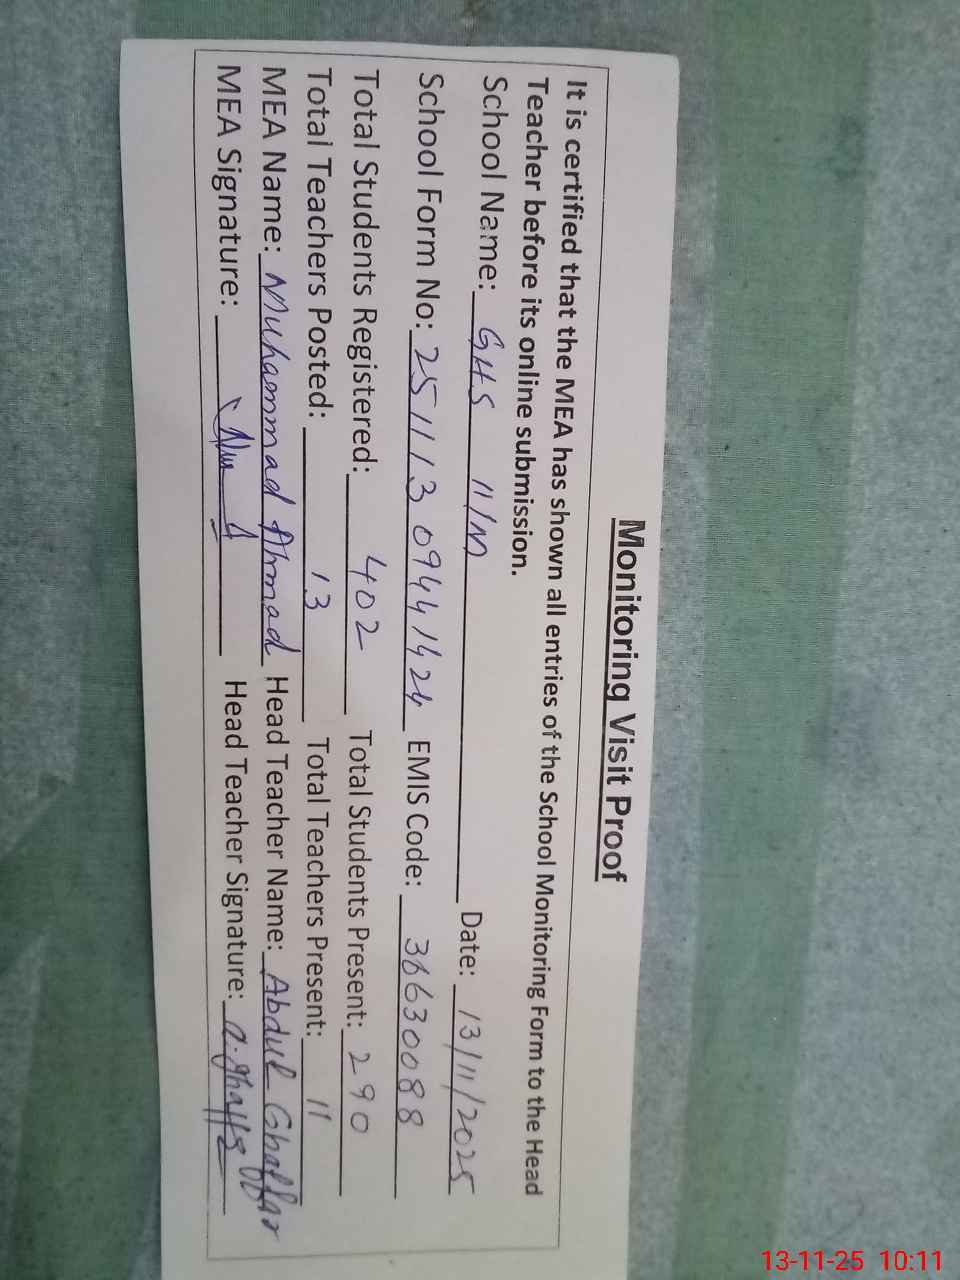 Monitoring Visit Proof
It is certified that the MEA has shown all entries of the School Monitoring Form to the Head
Teacher before its online submission.
School Name: GHS 11/M Date: 13/11/2025
School Form No: 25111309441424 EMIS Code: 36630088
Total Students Registered: 402 Total Students Present: 290
Total Teachers Posted: 13 Total Teachers Present: 11
MEA Name: Muhammad Ahmad Head Teacher Name: Abdul Ghaffar
MEA Signature: Head Teacher Signature: a.ghaffar
13-11-25 10:11